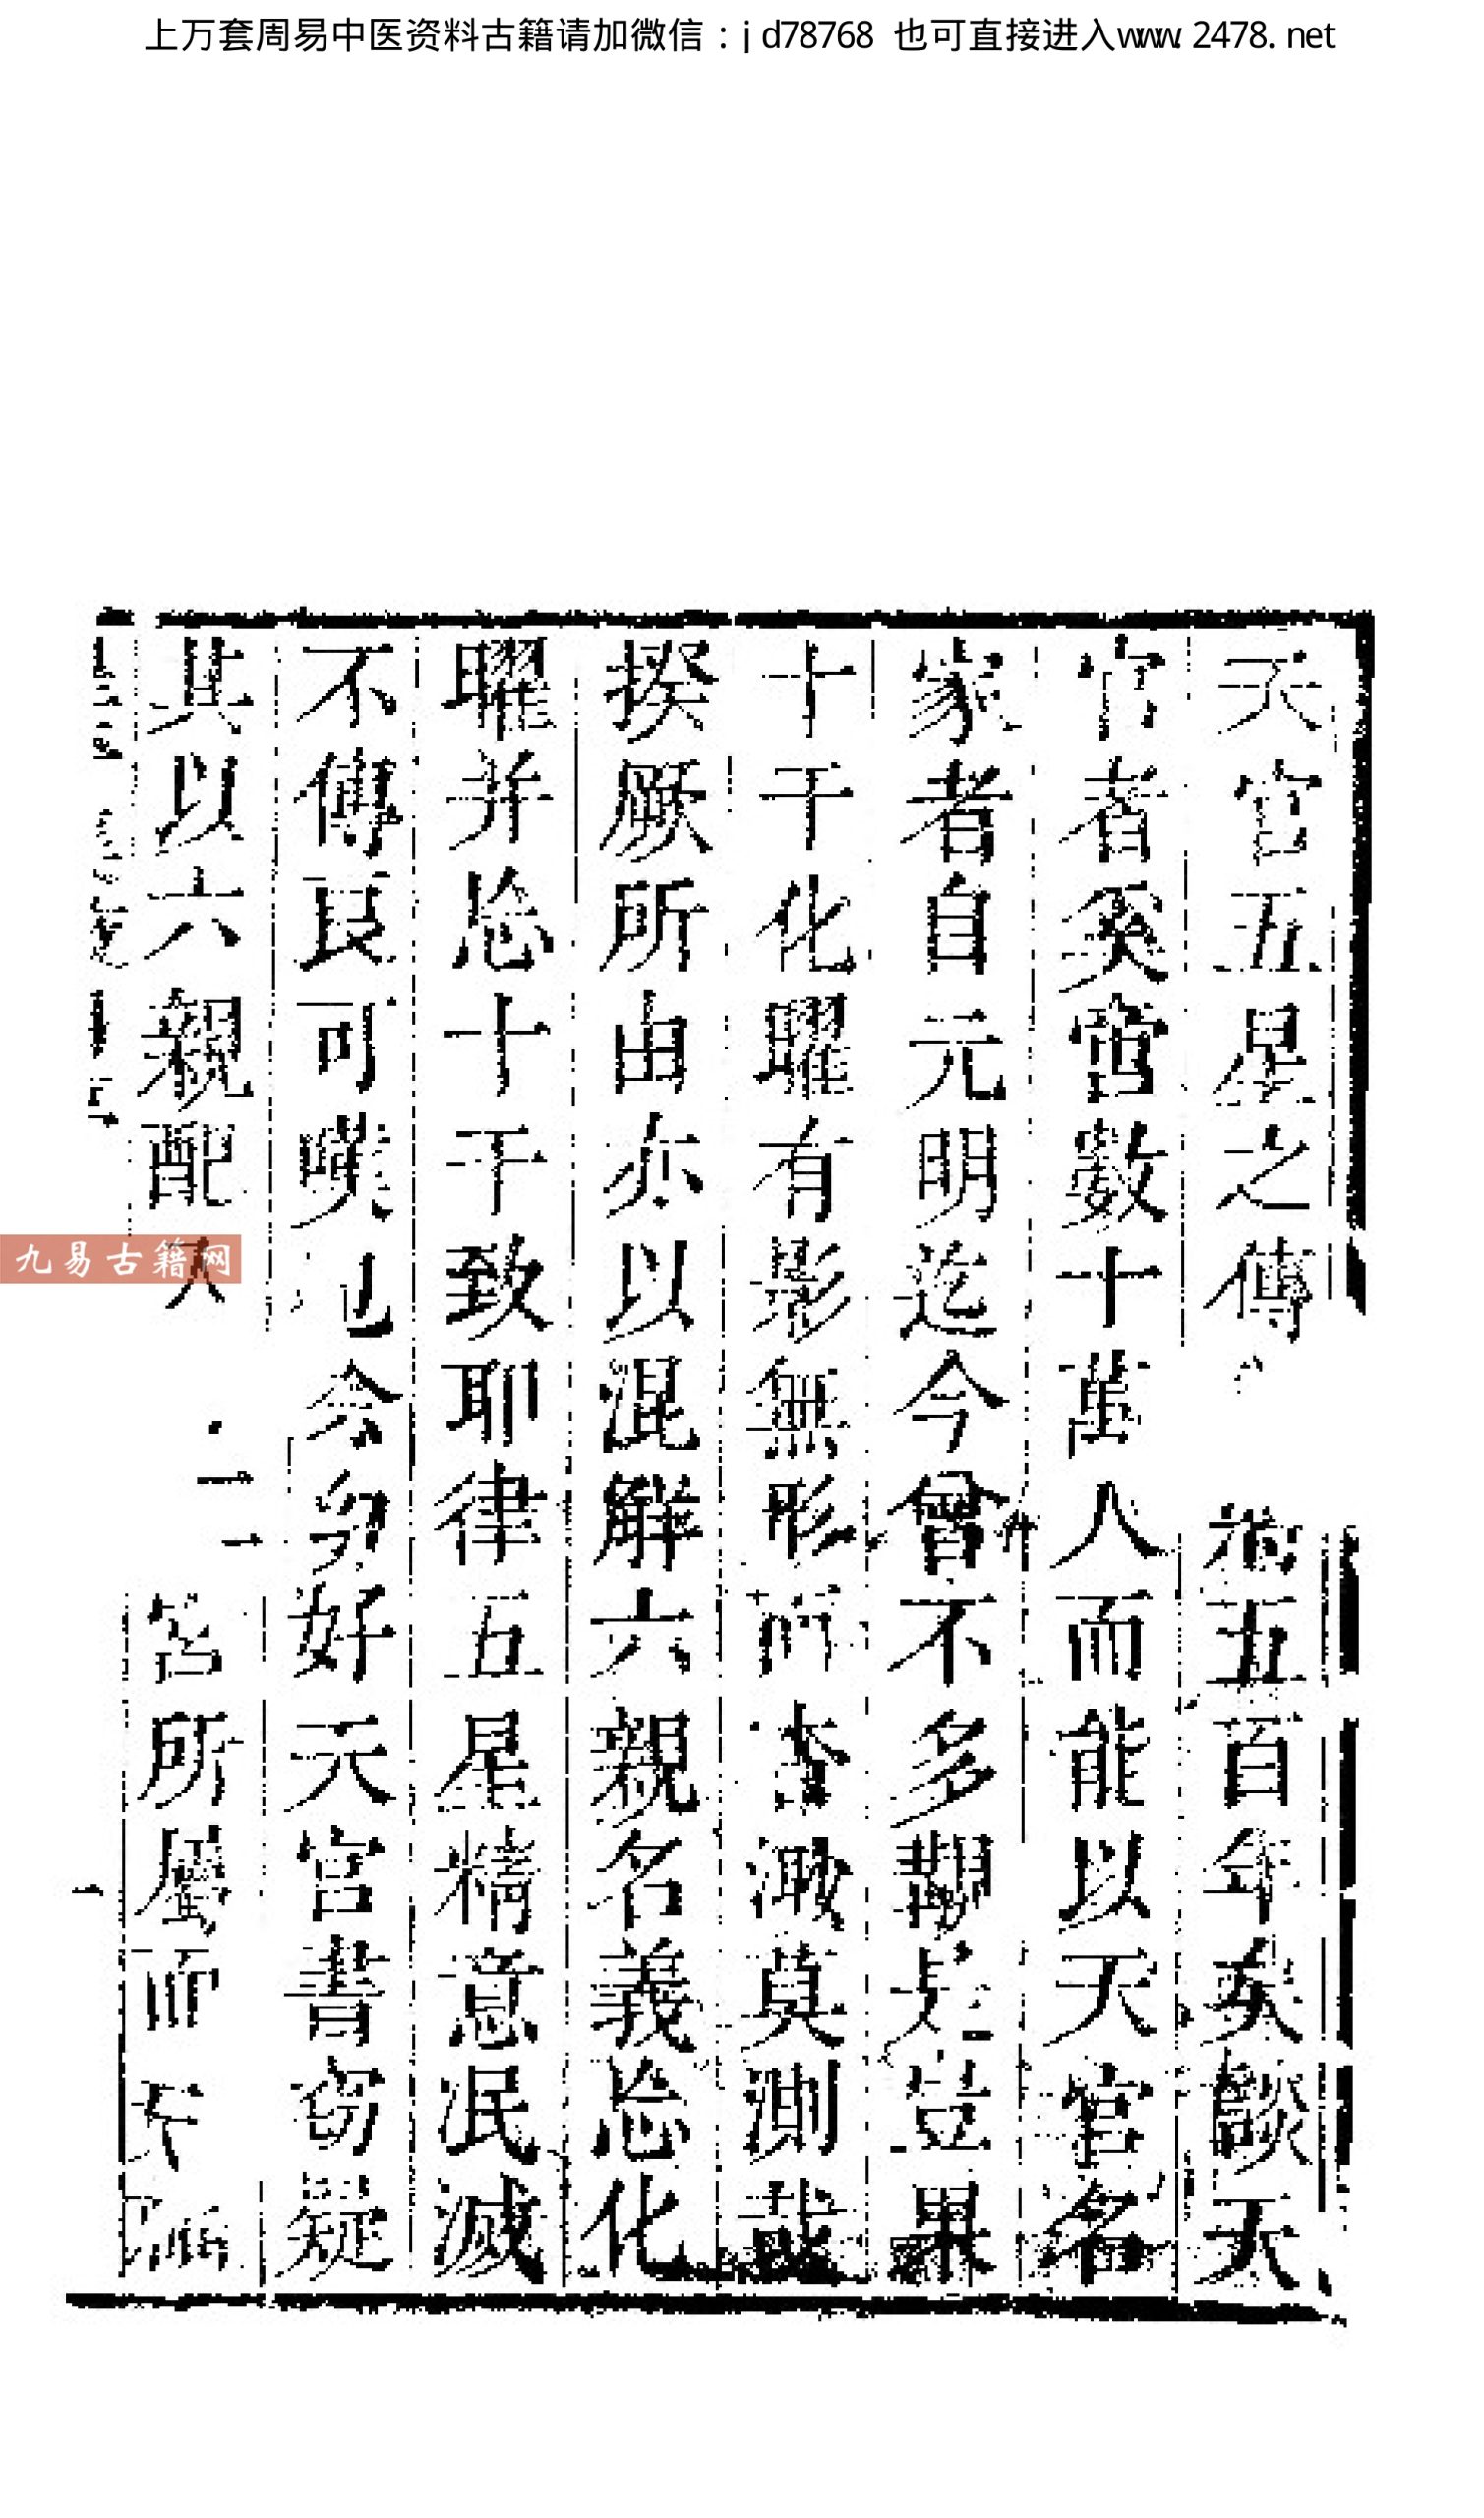 上万套周易中医资料古籍请加微信：jd78768 也可直接进入www.2478.net
天官五星之傳 五百年矣談天
官者奚啻數十萬人而能以天官名
家者自元明迄今曾不多覯是豈果
十干化曜有影無形而杳渺莫測哉
揆厥所由亦以混觧六親名義忩化
曜并忩十干致耶律五星精意泯滅
不傳良可嘆也余 好天官書窃疑
其以六親配人 宮所屬而
九易古籍网